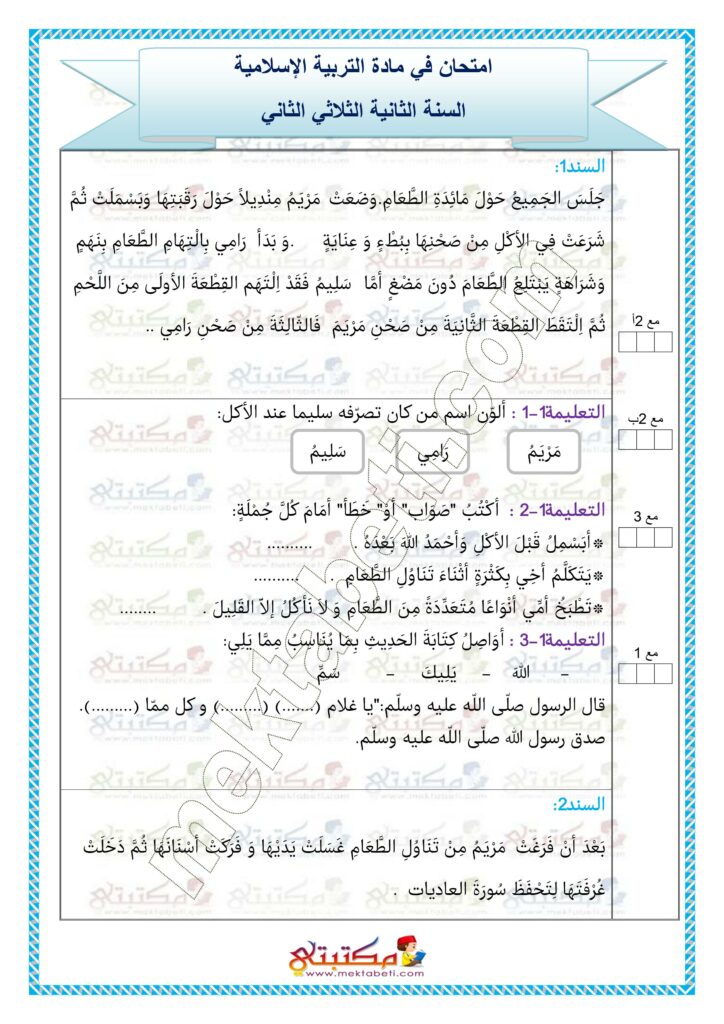 امتحان في مادة التربية الإسلامية
السنة الثانية الثلاثي الثاني
السند1:
جَلَسَ الجَمِيعُ حَوْلَ مَائِدَةِ الطَّعَامِ.وَضَعَتْ مَرْيَمُ مِنْدِيلاً حَوْلَ رَقَبَتِهَا وَبَسْمَلَتْ ثُمَّ
شَرَعَتْ فِي الأَكْلِ مِنْ صَحْنِهَا بِبُطْءٍ وَ عِنَايَةٍ .وَ بَدَأَ رَامِي بِالْتِهَامِ الطَّعَامِ بِنَهَمٍ
وَشَرَاهَةٍ يَبْتَلِعُ الطَّعَامَ دُونَ مَضْغٍ أمَّا سَلِيمُ فَقَدْ اِلْتَهَم القِطْعَةَ الأولَى مِنَ اللَّحْمِ
ثُمَّ اِلْتَقَطَ القِطْعَةَ الثَّانِيَةَ مِنْ صَحْنِ مَرْيَمَ فَالثّالِثَةَ مِنْ صَحْنِ رَامِي ..
مع 2أ
التعليمة1-1 : ألوّن اسم من كان تصرّفه سليما عند الأكل:
مَرْيَمُ
رَامِي
سَلِيمُ
مع 2ب
التعليمة1-2 : أكْتُبُ "صَوَاب" أوْ" خَطَأ" أمَامَ كُلَّ جُمْلَةٍ:
❊أبَسْمِلُ قَبْلَ الأكْلِ وَأحْمَدُ اللهَ بَعْدَهُ . ..........
❊يَتَكَلَّمُ أخِي بِكَثْرَةٍ أثْنَاءَ تَنَاوُلِ الطَّعَامِ . ..........
❊تَطْبَخُ أمِّي أنْوَاعًا مُتَعَدِّدَةً مِنَ الطَّعَامِ وَ لاَ نَأكُلُ إلاّ القَلِيلَ . ........
مع 3
التعليمة1-3 : أوَاصِلُ كِتَابَةَ الحَدِيثِ بِمَا يُنَاسِبُ مِمَّا يَلِي:
– اللهَ – يَلِيكَ – سَمِّ
قال الرسول صلّى اللّه عليه وسلّم:"يا غلام (.......) (.........) و كل ممّا (.........).
صدق رسول الله صلّى اللّه عليه وسلّم.
مع 1
السند2:
بَعْدَ أنْ فَرَغَتْ مَرْيَمُ مِنْ تَنَاوُلِ الطَّعَامِ غَسَلَتْ يَدَيْهَا وَ فَرَكَتْ أسْنَانَهَا ثُمَّ دَخَلَتْ
غُرْفَتَهَا لِتَحْفَظَ سُورَةَ العاديات .
mektabeti.com
مكتبتي
www.mektabeti.com